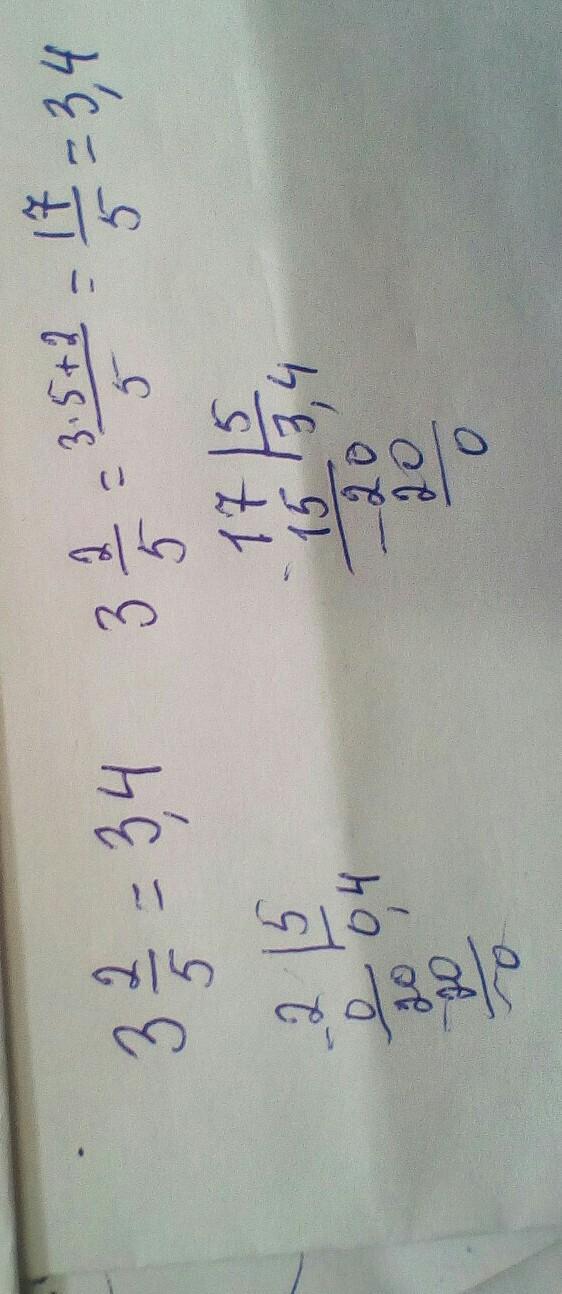 3 2/5 = 3,4
2 | 5
0 | 0,4
20
20
0
3 2/5 = 3·5+2/5 = 17/5 = 3,4
17 | 5
15 | 3,4
20
20
0